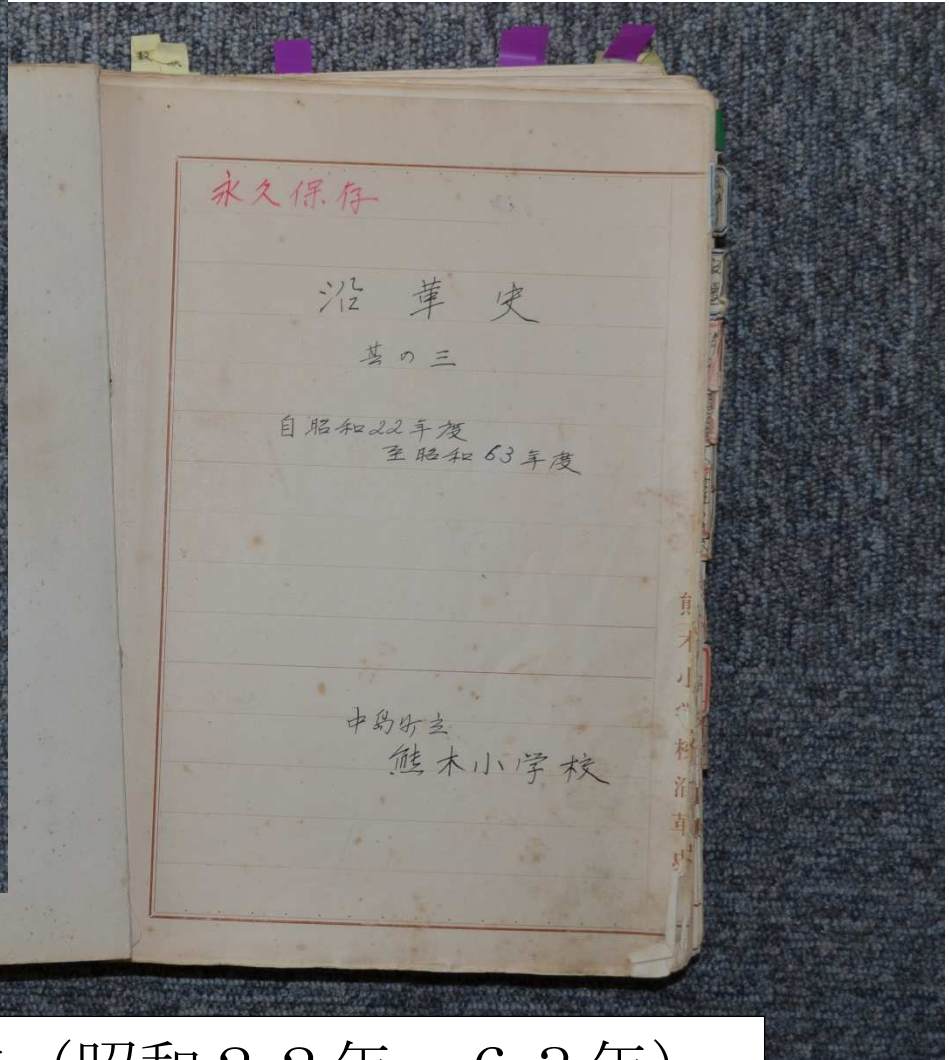 永久保存
沿革史
其の三
自昭和22年度
至昭和63年度
中島町立
熊木小学校
熊木小学校沿革史
（昭和２２年　６３年）